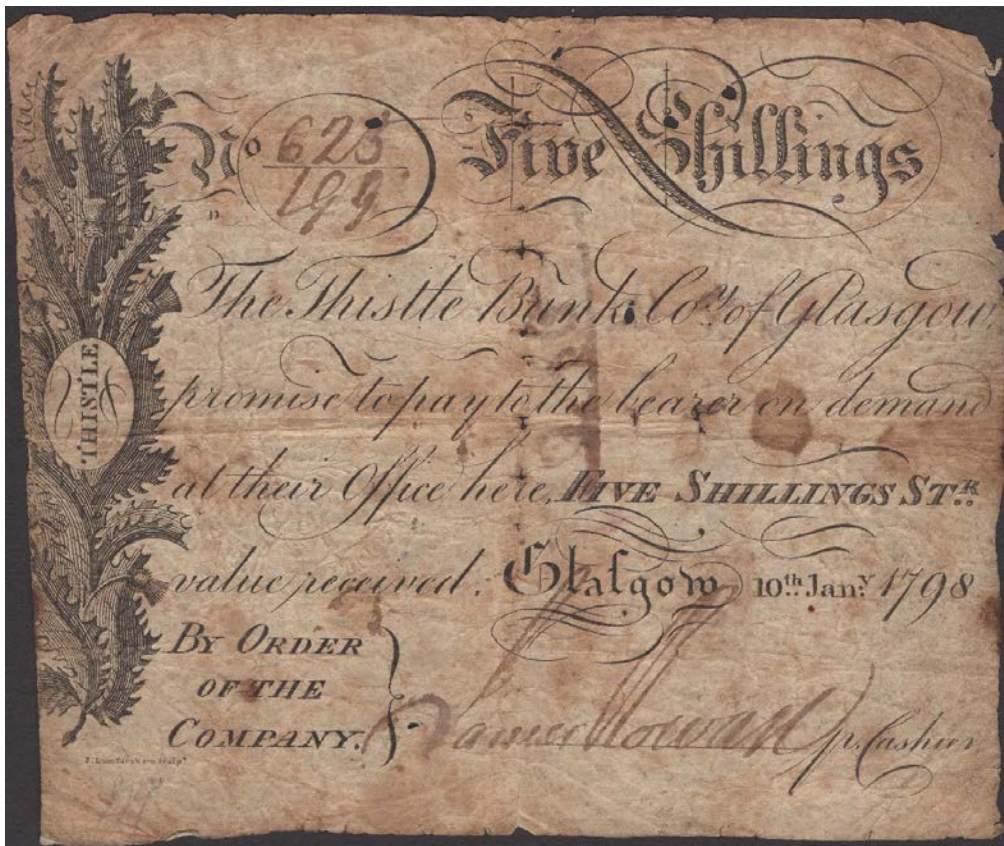 No 625/199 Five Shillings
D
The Thistle Bank Coy. of Glasgow,
promise to pay to the bearer on demand
at their Office here, FIVE SHILLINGS STR.
value received. Glasgow 10th. Jany. 1798
THISTLE
BY ORDER
OF THE
COMPANY.
James p. Cashier